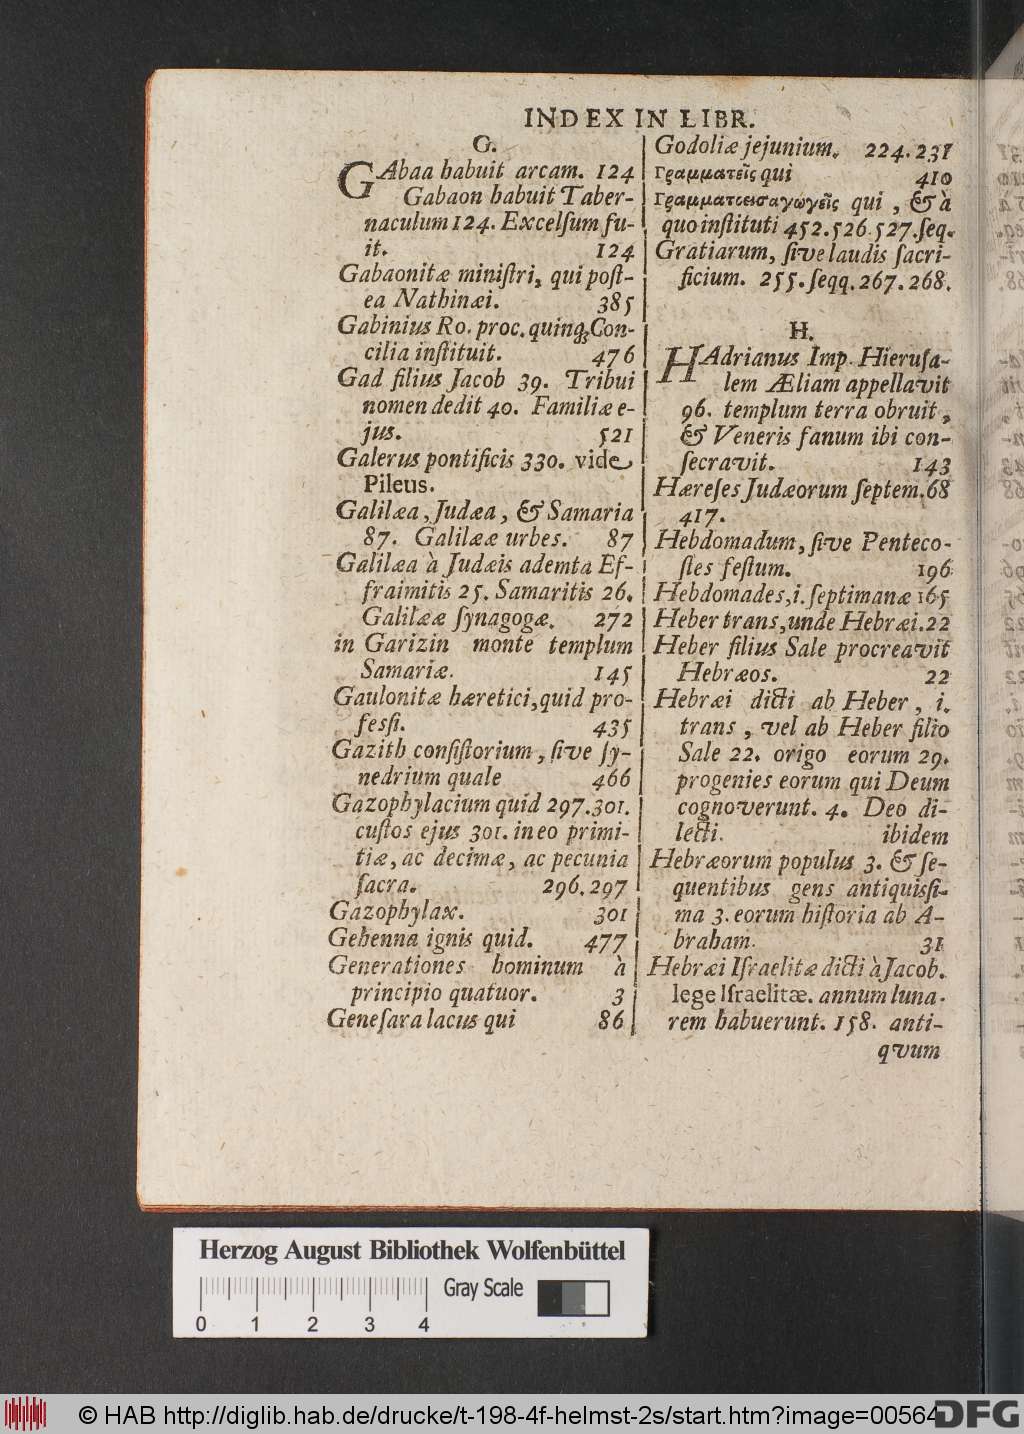 INDEX IN LIBR.
G.
GAbaa habuit arcam. 124
Gabaon habuit Taber-
naculum 124. Excelſum fu-
it. 124
Gabaonitæ miniſtri, qui poſt-
ea Nathinæi. 385
Gabinius Ro. proc. quinq; Con-
cilia inſtituit. 476
Gad filius Jacob 39. Tribui
nomen dedit 40. Familiæ e-
jus. 521
Galerus pontificis 330. vide
Pileus.
Galilæa, Judæa, & Samaria
87. Galilææ urbes. 87
Galilæa à Judæis ademta Ef-
fraimitis 25. Samaritis 26.
Galilææ ſynagogæ. 272
in Garizin monte templum
Samariæ. 145
Gaulonitæ hæretici, quid pro-
feſſi. 435
Gazith conſiſtorium, ſive ſy-
nedrium quale 466
Gazophylacium quid 297.301.
cuſtos ejus 301. in eo primi-
tiæ, ac decimæ, ac pecunia
ſacra. 296.297
Gazophylax. 301
Gehenna ignis quid. 477
Generationes hominum à
principio quatuor. 3
Geneſara lacus qui 86
Godoliæ jejunium. 224.231
Γραμματεῖς qui 410
Γραμματοεισαγωγεῖς qui, & à
quo inſtituti 452.526.527.ſeq.
Gratiarum, ſive laudis ſacri-
ficium. 255.ſeqq.267.268.
H.
HAdrianus Imp. Hieruſa-
lem Æliam appellavit
96. templum terra obruit,
& Veneris fanum ibi con-
ſecravit. 143
Hæreſes Judæorum ſeptem. 68
417.
Hebdomadum, ſive Penteco-
ſtes feſtum. 196
Hebdomades, i. ſeptimanæ 165
Heber trans, unde Hebræi. 22
Heber filius Sale procreavit
Hebræos. 22
Hebræi dicti ab Heber, i.
trans, vel ab Heber filio
Sale 22. origo eorum 29.
progenies eorum qui Deum
cognoverunt. 4. Deo di-
lecti. ibidem
Hebræorum populus 3. & ſe-
quentibus gens antiquiſſi-
ma 3. eorum hiſtoria ab A-
braham. 31
Hebræi Iſraelitæ dicti à Jacob.
lege Iſraelitæ. annum luna-
rem habuerunt. 158. anti-
qvum
Herzog August Bibliothek Wolfenbüttel
Gray Scale
0 1 2 3 4
© HAB http://diglib.hab.de/drucke/t-198-4f-helmst-2s/start.htm?image=00564
DFG